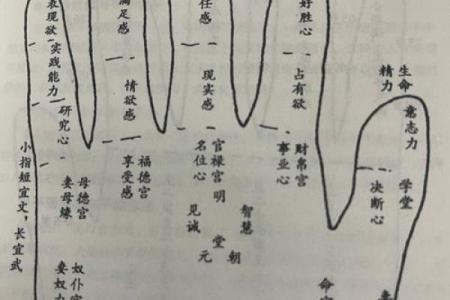 表现欲
实践能力
研究心
满足感
情欲感
任感
现实感
好胜心
占有欲
生命
精力
意志力
学堂
决断心
小指短宜文，长宜武
母德宫
妻母缘
福德宫
享受感
官禄宫
名位心
财帛宫
事业心
明
堂
见诚
元
智慧
朝
奴仆
妻奴
命